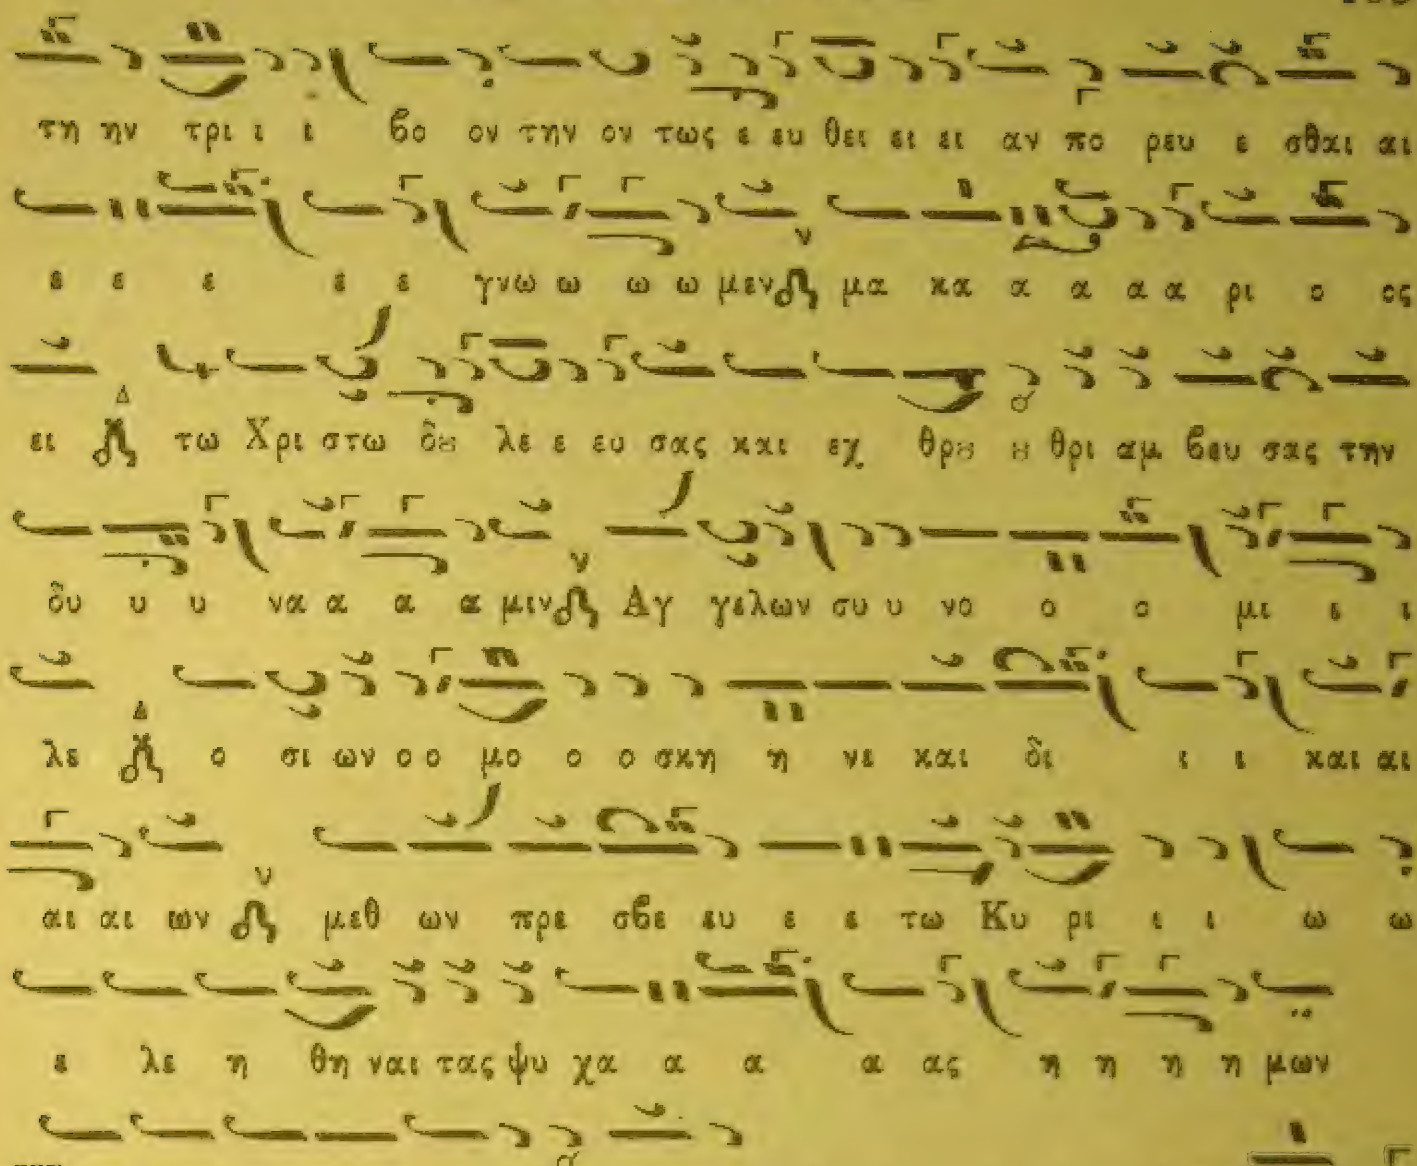 τη ην τρι ι ι ϐο ον την ον τως ε ευ θει ει ει αν πο ρευ ε σθαι αι
ε ε ε ε ε γνω ω ω ω μεν μα κα α α α α ρι ο ος
ει τω Χρι στω δȣ λε ε ευ σας και εχ θρȣ ȣ θρι αμ ϐευ σας την
δυ υ υ να α α α μιν Αγ γελων συ υ νο ο ο μι ι ι
λε ο σι ων ο ο μο ο ο σκη η νε και δι ι ι και αι
αι αι ων μεθ ων πρε σϐε ευ ε ε τω Κυ ρι ι ι ω ω
ε λε η θη ναι τας ψυ χα α α α ας η η η η μων